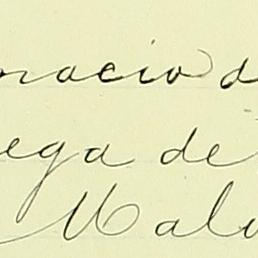 nacio d
ega de
Malu